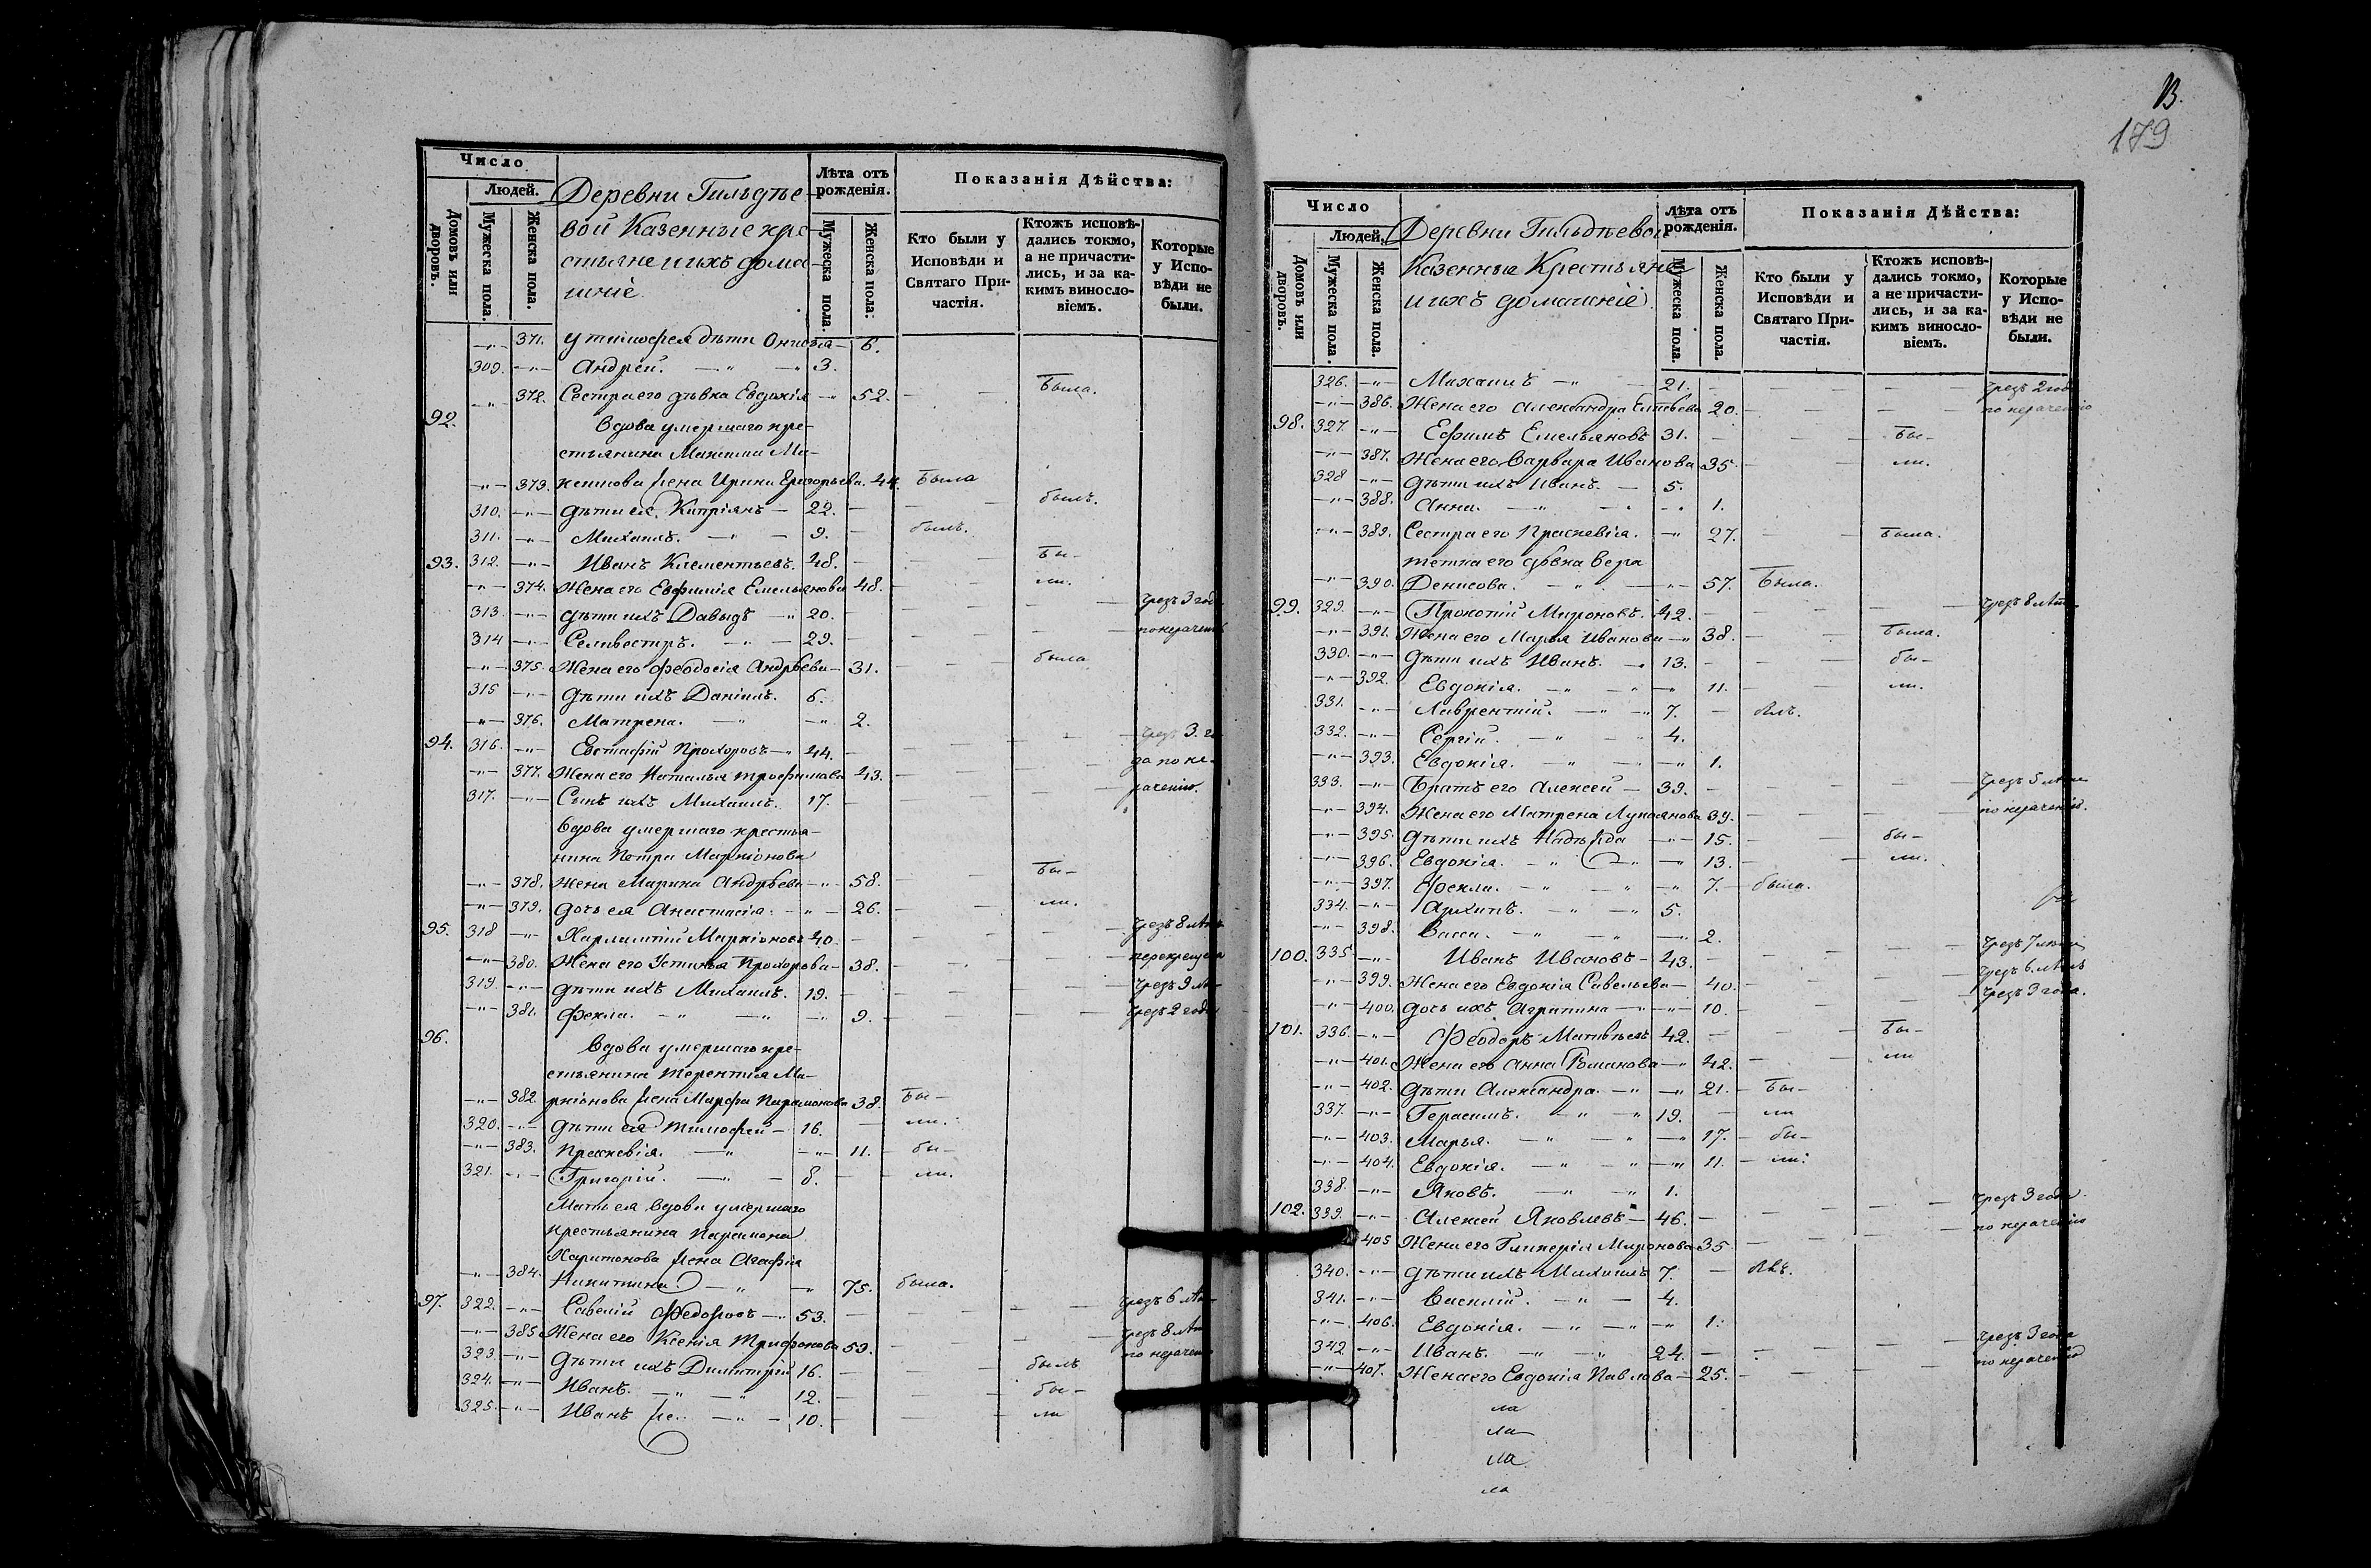 Число
Людей.
Домовъ или дворовъ.
Мужеска пола.
Женска пола.
Деревни Гильдѣе-
вой Казенные кре-
стьяне и ихъ дома-
шніе
Лѣта отъ рожденія.
Мужеска пола.
Женска пола.
Показанія Дѣйства:
Кто были у Исповѣди и Святаго Причастія.
Ктожъ исповѣдались токмо, а не причастились, и за какимъ винословіемъ.
Которые у Исповѣди не были.
371. у тимофея дѣти 6.
309. Андрей. 3.
372. Сестра его дѣвка Евдокія 52. Была.
92. Вдова умершаго кре-
стьянина Максима Ма-
373. жена Ирина Григорьева. 44. Была
310. Дѣти ея Кипріянъ 22. былъ.
311. Михаилъ. 9. былъ.
93. 312. Иванъ Клементьевъ. 48. Бы-
374. Жена его Евфимія Емельянова 48. ли.
313. Дѣти ихъ Давыдъ 20. чрезъ 3 года
314 Селивестръ. 29. по нераченію
375. Жена его Феодосія Андрѣева 31. была
315 Дѣти ихъ Даніилъ. 6.
376. Матрена. 2.
94. 316. Евстафій Прохоровъ 44. чрезъ 3. го-
377. Жена его Наталья трофимова 43. да по не-
317. Сынъ ихъ Михаилъ. 17. раченію.
Вдова умершаго крестья-
нина Петра Маркіонова
378. Жена Марина Андрѣева 58. Бы-
379. Дочь ея Анастасія. 26. ли.
95. 318 Харлампій Маркіоновъ 40. чрезъ 8 лѣтъ
380. Жена его Устинья Прохорова 38.
319. Дѣти ихъ Михаилъ. 19. чрезъ 9 лѣ-
381. Фекла. 9. чрезъ 2 года
96. Вдова умершаго кре-
стьянина Терентія Ма-
382. ркіонова жена Марфа Парамонова 38. Бы-
320. Дѣти ея тимофей 16. ли.
383. Праскевія. 11. бы-
321. Григорій. 8. ли.
Мать ея вдова умершаго
крестьянина Парамона
Харитонова жена Агафія
384. Никитина 75. была.
97. 322. Савелій Федоровъ 53. чрезъ 6 лѣ-
385 Жена его Ксенія Трифонова 53. чрезъ 8 лѣт
323. Дѣти ихъ Димитрій 16. былъ по нерачен
324. Иванъ. 12. бы-
325. Иванъ же. 10. ли
13.
179
Число
Людей.
Домовъ или дворовъ.
Мужеска пола.
Женска пола.
Деревни Гильдѣевой
Казенные Крестьяне
и ихъ домашніе
Лѣта отъ рожденія.
Мужеска пола.
Женска пола.
Показанія Дѣйства:
Кто были у Исповѣди и Святаго Причастія.
Ктожъ исповѣдались токмо, а не причастились, и за какимъ винословіемъ.
Которые у Исповѣди не были.
326. Михаилъ 21. чрезъ 2 года
386. Жена его Александра 20. по нераченію
98. 327. Ефимъ Емельяновъ 31. Бы-
387. Жена его Варвара Иванова 35. ли.
328 Дѣти ихъ Иванъ. 5.
388. Анна. 1.
389. Сестра его Праскевія. 27. Была.
тетка его дѣвка Вера
390. Денисова. 57. Была.
99. 329. Прокопій Мироновъ. 42. чрезъ 8 лѣт
391. Жена его Марья Иванова 38. Была.
330. Дѣти ихъ Иванъ. 13. бы-
392. Евдокія. 11. ли.
331. Лаврентій. 7. былъ.
332. Сергій. 4.
393. Евдокія. 1.
333. Братъ его Алексей 39. Чрезъ 5 лѣт
394. Жена его Матрена Лукоянова 39. по нераченію.
395. Дѣти ихъ Надѣжда 15. бы-
396. Евдокія. 13. ли.
397. Фекла. 7. была.
334. Архипъ. 5.
398. Васса. 2.
100. 335 Иванъ Ивановъ 43. Чрезъ 7 лѣт
399. Жена его Евдокія Савельева 40. Чрезъ 6 лѣтъ
400. дочь ихъ Аграпина 10. Чрезъ 3 года.
101. 336. Феодоръ Матвѣевъ 42. Бы-
401. Жена его Анна Романова 42. ли
402. Дѣти Александра. 21. Бы-
337. Герасимъ. 19. ли
403. Марья. 17. бы-
404. Евдокія. 11. ли.
338. Яковъ. 1.
102. 339. Алексей Яковлевъ 46. чрезъ 3 года
405 Жена его Гликерія Миронова 35 по нераченію
340. Дѣти ихъ Михаилъ 7.
341. Василій. 4.
406. Евдокія. 1.
342 Иванъ. 24. Чрезъ 3 года
407. Жена его Евдокія Павлова 25. по нераченію
ла
ла
ла
ла